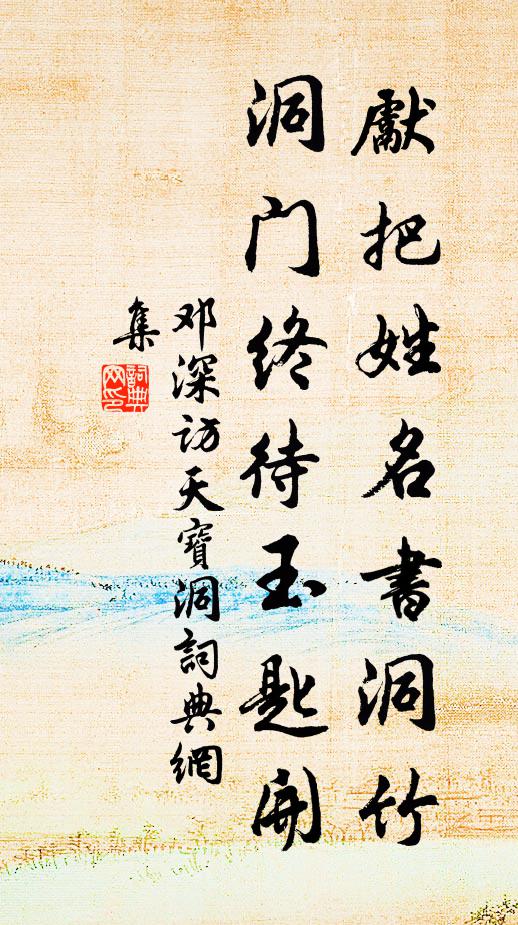 獻把姓名書洞竹
洞门终待玉匙開
邓深访天寶洞詞典網
集
詞典网印